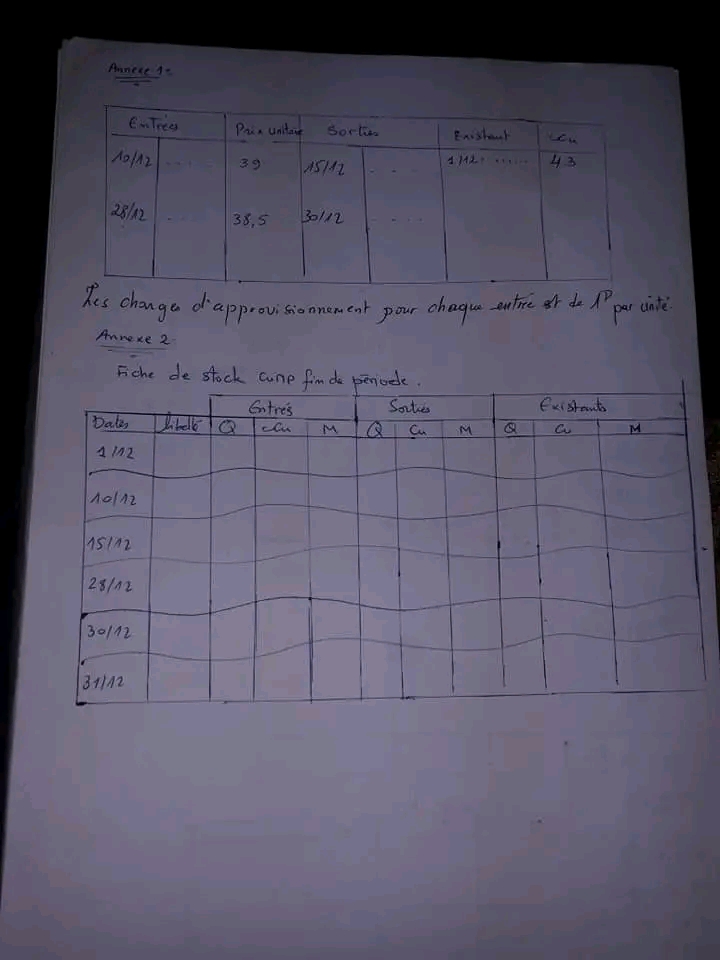 Annexe 1:
Entrées Prix unitaire Sorties Existant CCu
10/12 ..... 39 15/12 ..... 1/12: ...... 43
28/12 .... 38,5 30/12 .....
Les charges d'approvisionnement pour chaque entré est de 1D par unité.
Annexe 2
Fiche de stock CUMP fin de période.
Entrés Sortis Existants
Dates libellé Q CCu M Q Cu M Q Cu M
1/12
10/12
15/12
28/12
30/12
31/12